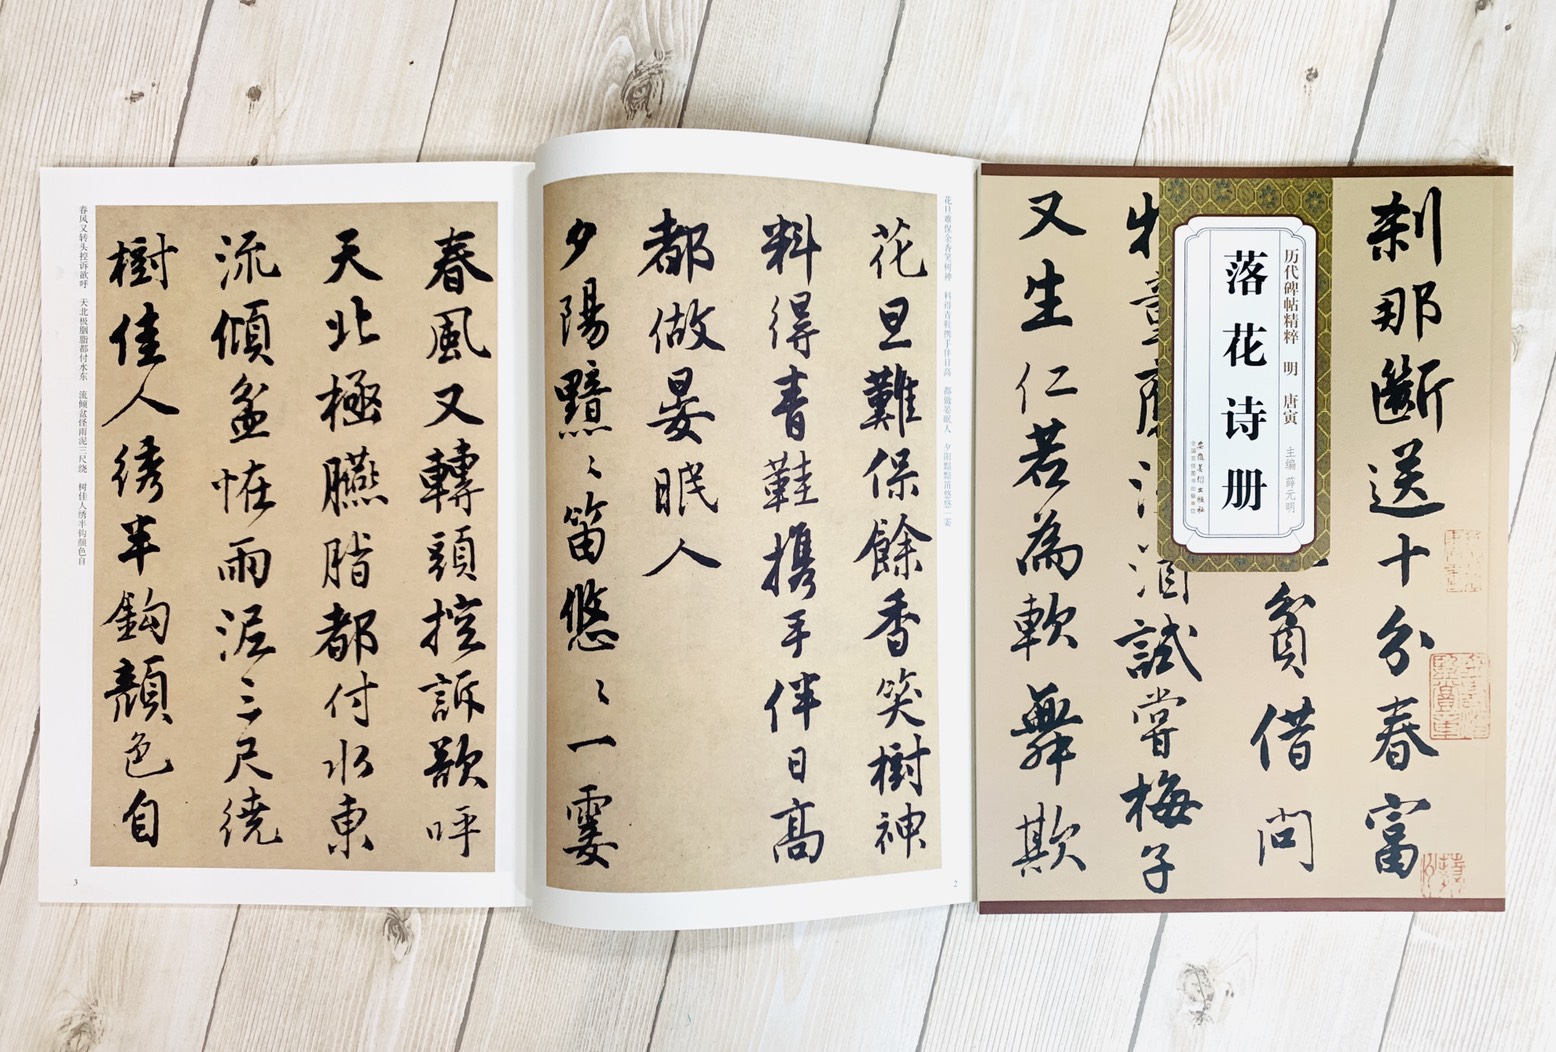 刹那斷送十分春富
貧借問
牧童酒試嘗梅子
又生仁若為軟舞欺
历代碑帖精粹 明 唐寅
主编 薛元明
落花诗册
安徽美术出版社
全国百佳图书出版单位
花旦难保余香笑树神 料得青鞋携手伴日高 都做晏眠人 夕阳黯黯笛悠悠一霎
花旦難保餘香笑樹神
料得青鞋携手伴日高
都做晏眠人
夕陽黯〻笛悠〻一霎
2
春風又轉頭控訴欲呼
天北極臙脂都付水東
流傾盆恠雨泥三尺繞
樹佳人綉半鈎顏色自
春风又转头控诉欲呼 天北极胭脂都付水东 流倾盆怪雨泥三尺绕 树佳人绣半钩颜色自
3